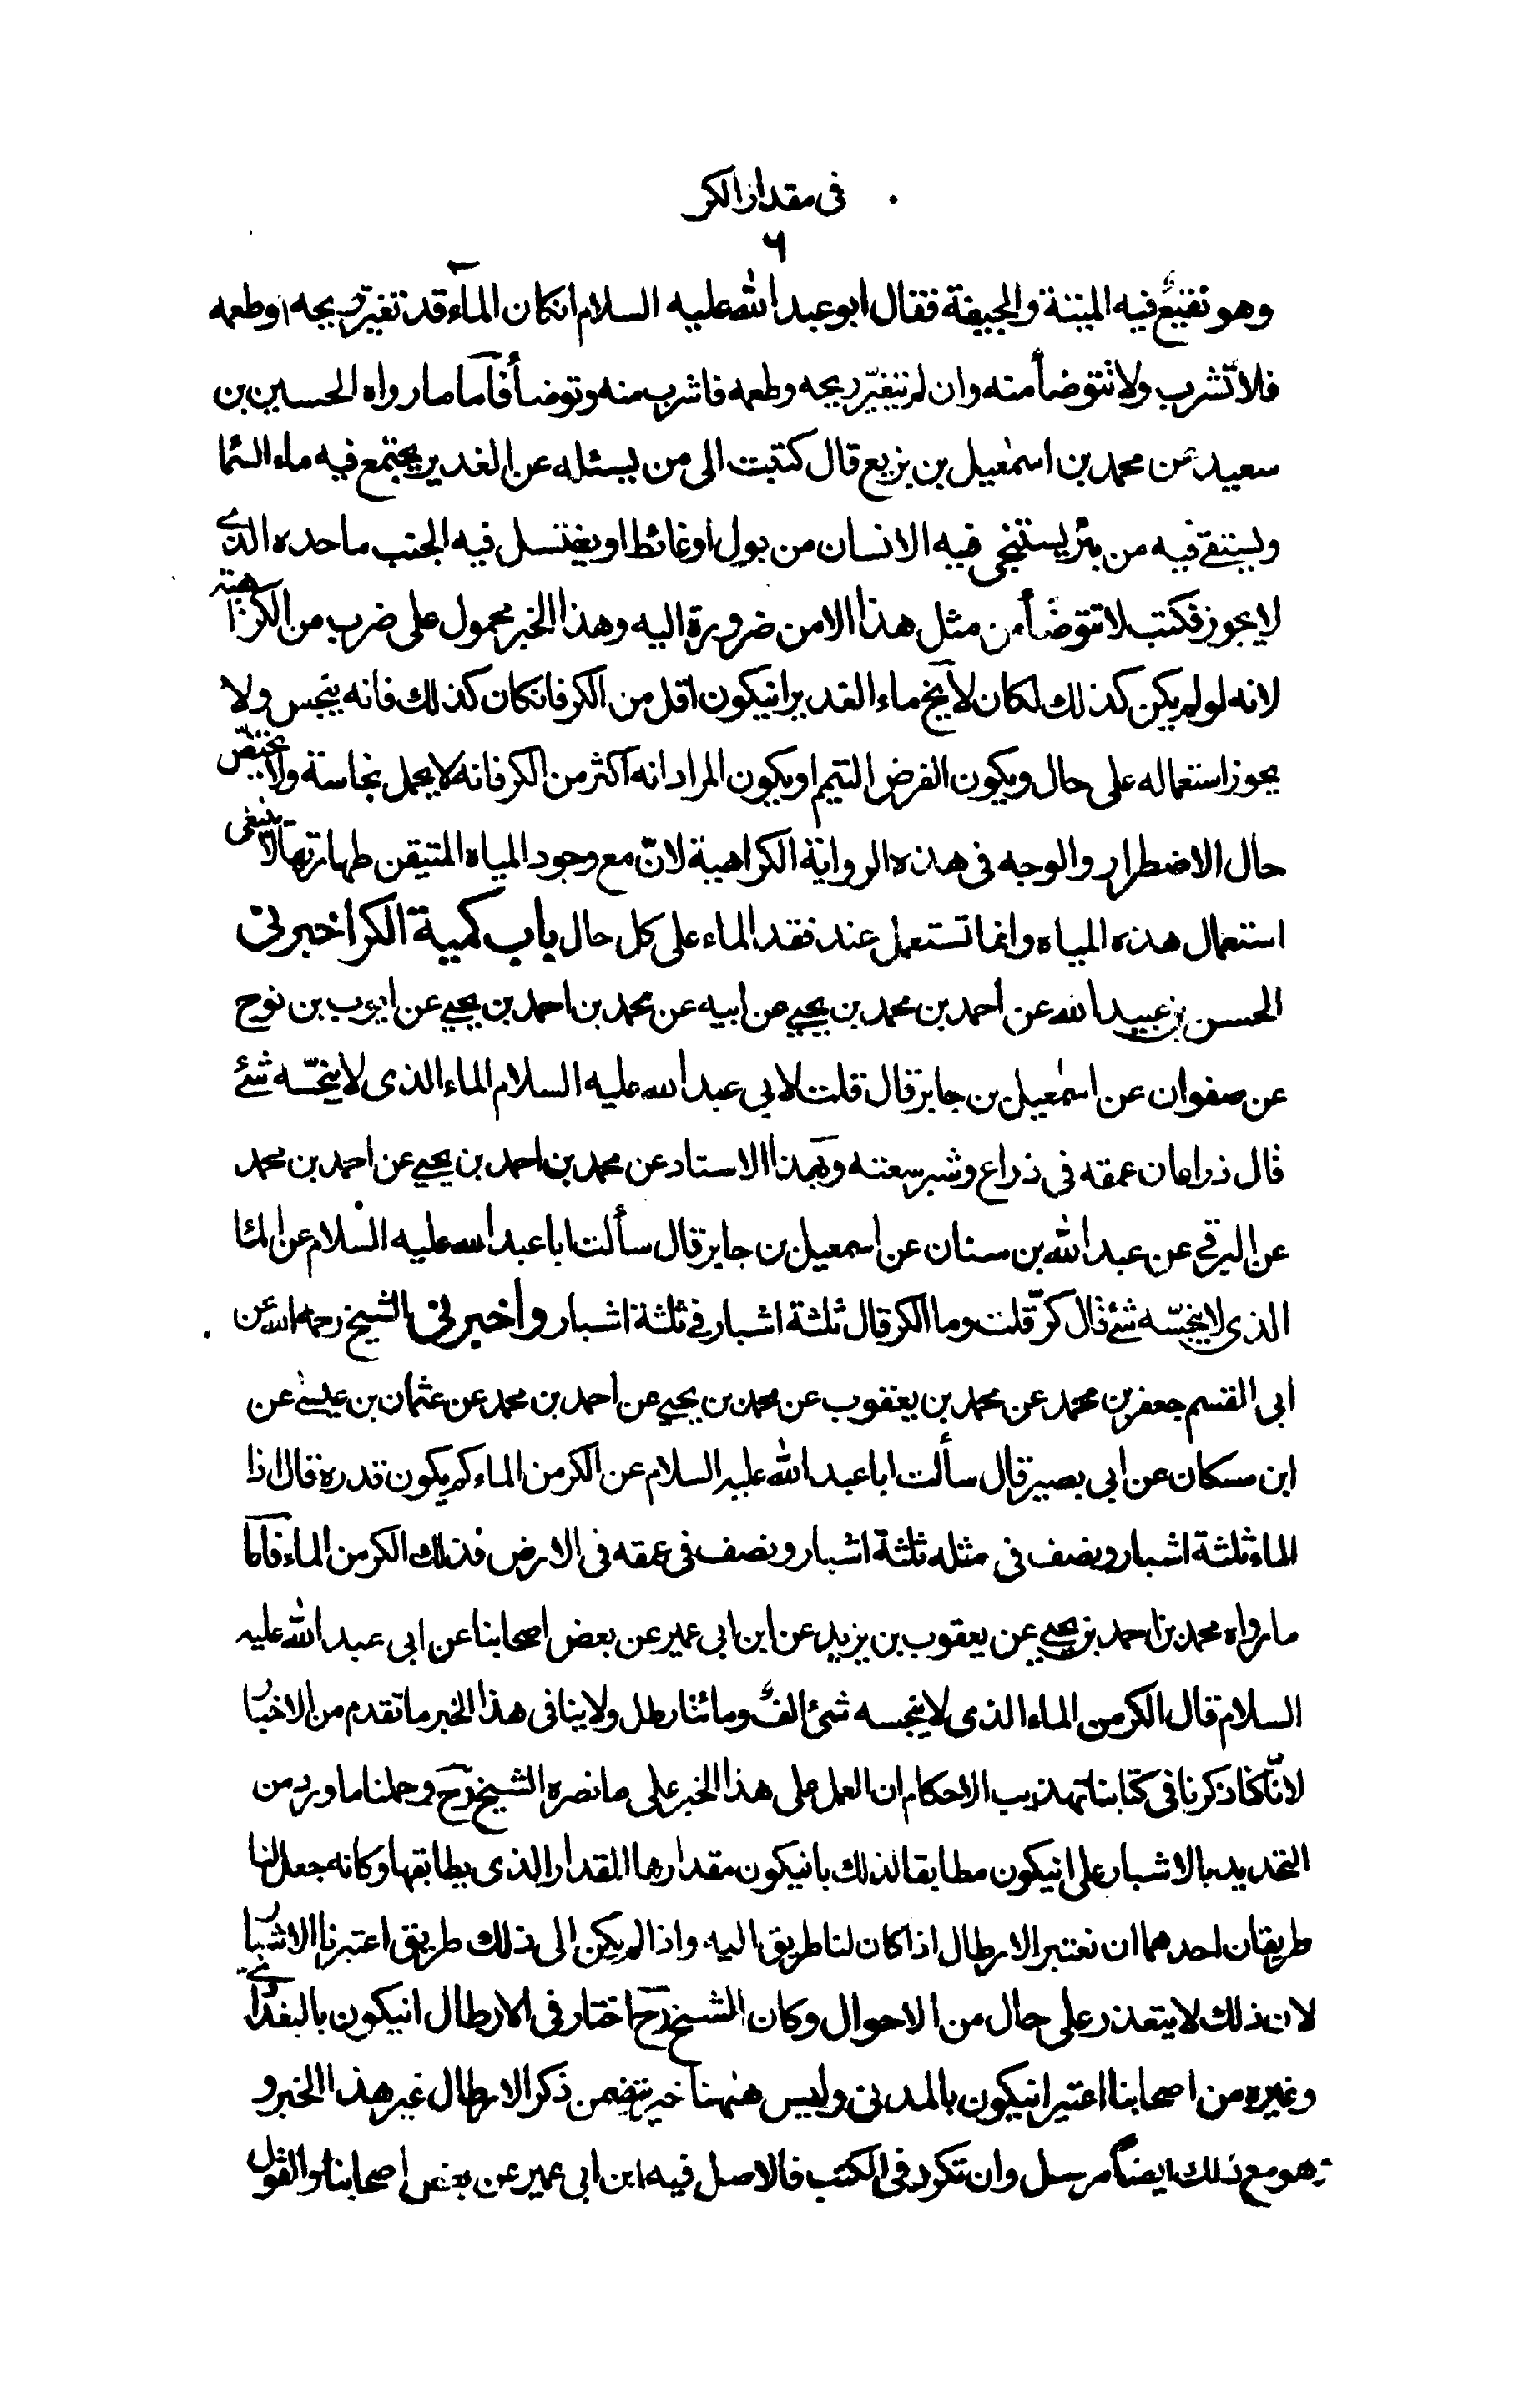 فى مقدار الكر
٦
وهو نقيع فيه الميتة والجيفة فقال ابو عبد الله عليه السلام انكان الماء قد تغيّر ريحه او طعمه
فلا تشرب ولا تتوضأ منه وان لم يتغيّر ريحه وطعمه فاشرب منه وتوضأ فآما ما رواه الحسين بن
سعيد عن محمد بن اسمعيل بن بزيع قال كتبت الى من يسئله عن الغدير يجتمع فيه ماء السّما
ويستقى فيه من بئر يستنجى فيه الانسان من بول او غائط او يغتسل فيه الجنب ما حده الذى
لا يجوز فكتب لا تتوضأ من مثل هذا الا من ضرورة اليه وهذا الخبر محمول على ضرب من الكراهية
لانه لو لم يكن كذلك لكان لا يخ ماء الغدير انيكون اقل من الكر فانكان كذلك فانه ينجس ولا
يجوز استعماله على حال ويكون الفرض التيمم او يكون المراد انه اكثر من الكر فانه لا يحمل نجاسة ولا يختصّ
حال الاضطرار والوجه فى هذه الرواية الكراهية لانّ مع وجود المياه المتيقن طهارتها لا ينبغى
استعمال هذه المياه وانما تستعمل عند فقد الماء على كل حال باب كمية الكر اخبرنى
الحسين بن عبيد الله عن احمد بن محمد بن يحيى عن ابيه عن محمد بن احمد بن يحيى عن ايوب بن نوح
عن صفوان عن اسمعيل بن جابر قال قلت لابى عبد الله عليه السلام الماء الذى لا ينجّسه شئ
قال ذراعان عمقه فى ذراع وشبر سعته وبهذا الاسناد عن محمد بن احمد بن يحيى عن احمد بن محمد
عن البرقى عن عبد الله بن سنان عن اسمعيل بن جابر قال سألت ابا عبد الله عليه السلام عن الما
الذى لا ينجّسه شئ قال كرّ قلت وما الكر قال ثلثة اشبار فى ثلثة اشبار واخبرنى الشيخ رحمه الله عن
ابى القسم جعفر بن محمد عن محمد بن يعقوب عن محمد بن يحيى عن احمد بن محمد عن عثمان بن عيسى عن
ابن مسكان عن ابى بصير قال سألت ابا عبد الله عليه السلام عن الكر من الماء كم يكون قدره قال اذا
الماء ثلثة اشبار ونصف فى مثله ثلثة اشبار ونصف فى عمقه فى الارض فذلك الكر من الماء فآما
ما رواه محمد بن احمد بن يحيى عن يعقوب بن يزيد عن ابن ابى عمير عن بعض اصحابنا عن ابى عبد الله عليه
السلام قال الكر من الماء الذى لا ينجسه شئ الف ومائتا رطل ولا ينافى هذا الخبر ما تقدم من الاخبار
لانّا كنا ذكرنا فى كتابنا تهذيب الاحكام ان العمل على هذا الخبر على ما نصره الشيخ رح وحملنا ما ورد من
التحديد بالاشبار على انيكون مطابقا لذلك بانيكون مقدارها المقدار الذى يطابقها وكانه جعل لنا
طريقان احدهما ان نعتبر الارطال اذا كان لنا طريق اليه واذا لم يكن الى ذلك طريق اعتبرنا الاشبار
لان ذلك لا يتعذر على حال من الاحوال وكان الشيخ رح اختار فى الارطال انيكون بالبغدادى
وغيره من اصحابنا اعتبر انيكون بالمدنى وليس ههنا خبر يتضمن ذكر الارطال غير هذا الخبر و
هو مع ذلك ايضاً مرسل وان تكرر فى الكتب فالاصل فيه ابن ابى عمير عن بعض اصحابنا والقول